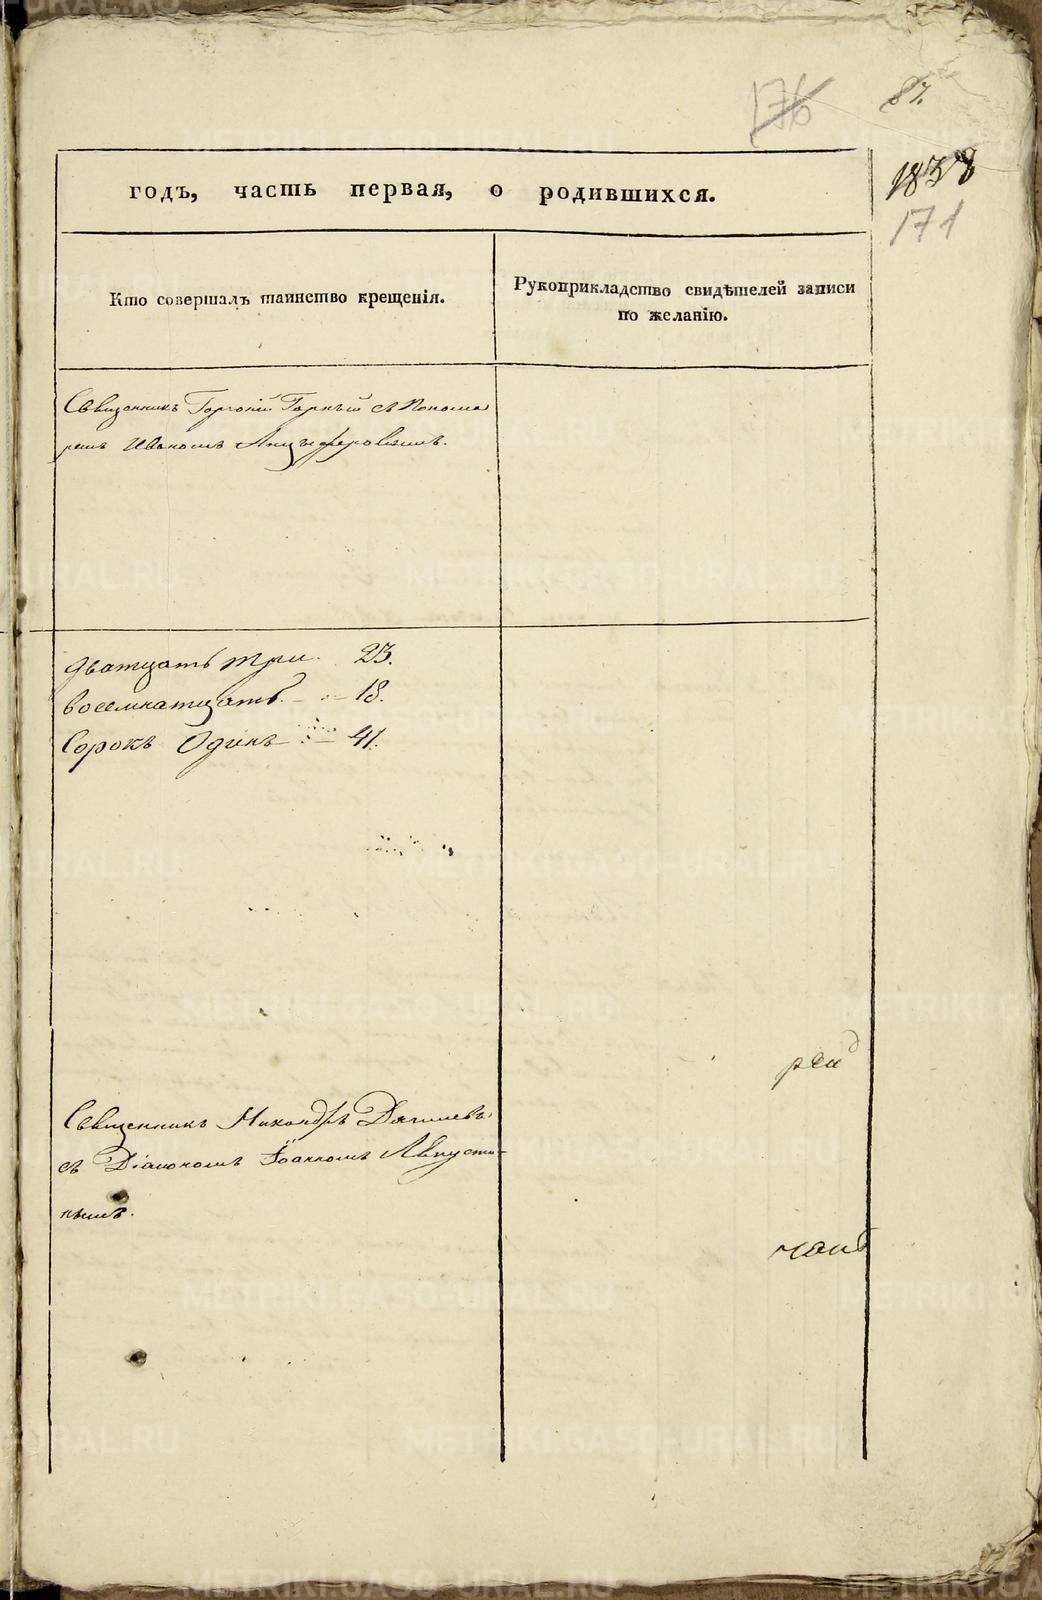 176
87.
1838
171
годъ, часть первая, о родившихся.
Кто совершалъ таинство крещенія.
Рукоприкладство свидѣтелей записи
по желанію.
Священникъ Горгоній Горный съ Понома
ремъ Иваномъ Анцыферовымъ.
дватцать три. 23.
восемнатцать. — 18.
Сорокъ Одинъ — 41.
Священникъ Никандръ Дягилевъ
съ Діакономъ Іоанномъ Августи-
нымъ.
METRIKI.GASO-URAL.RU